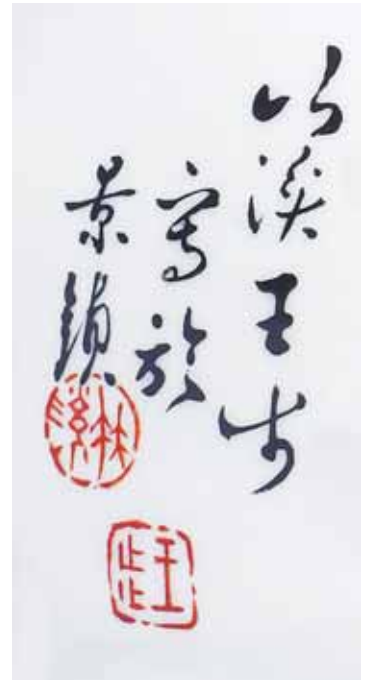 竹溪王步
寫於
景鎮
王步